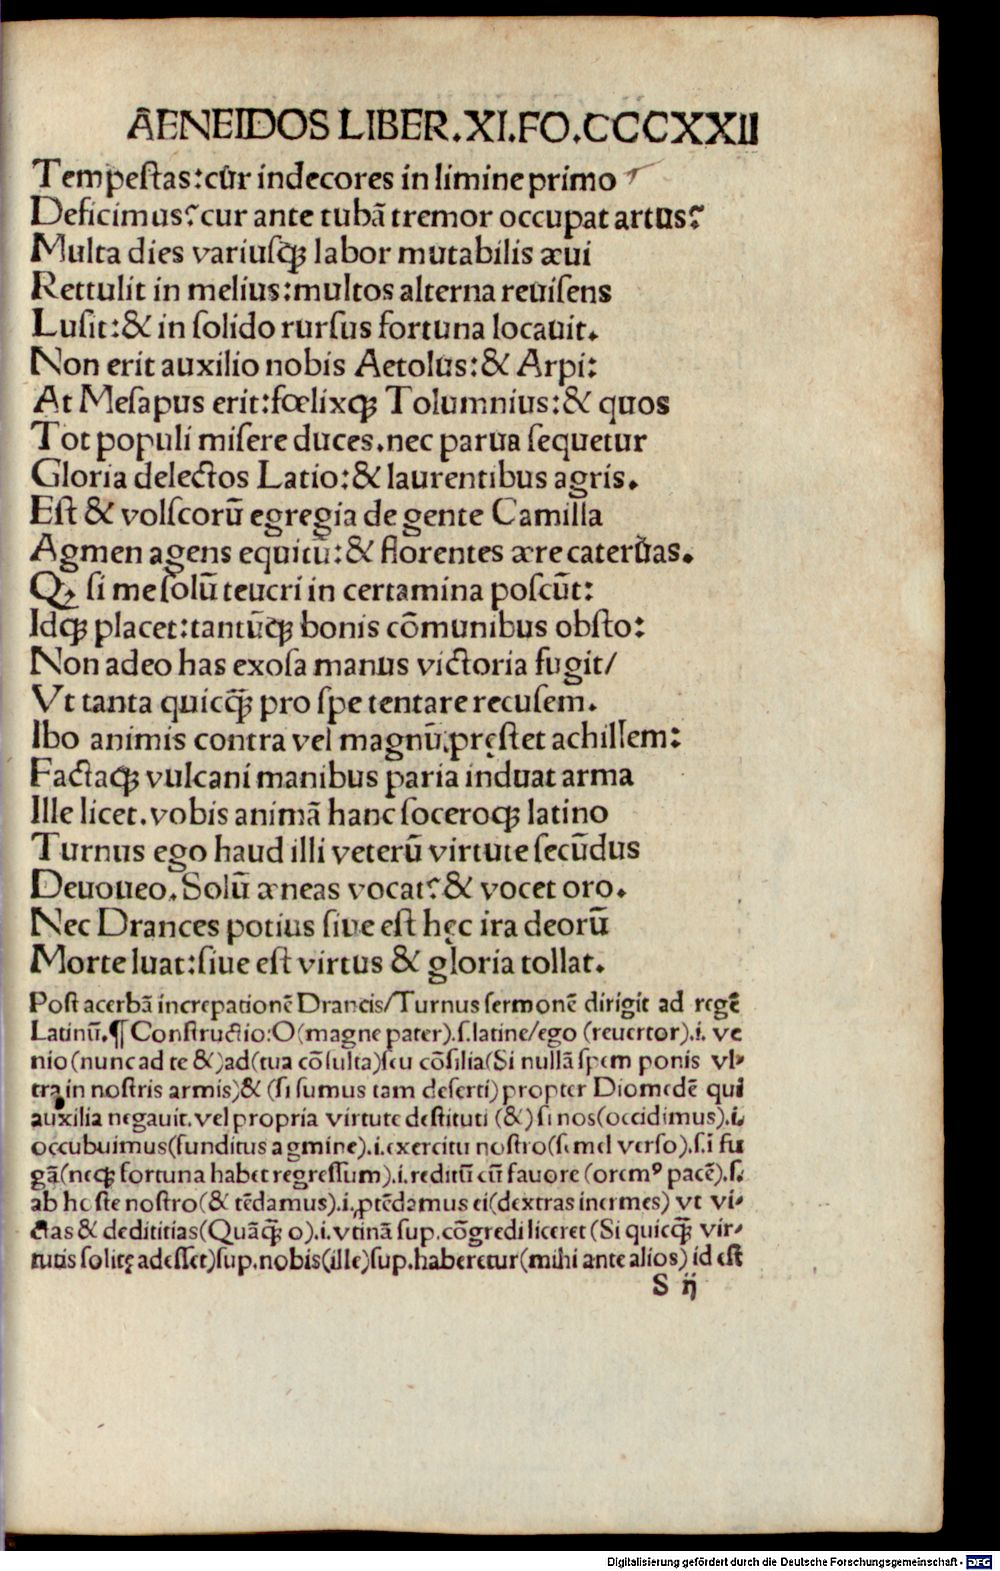 AENEIDOS LIBER.XI.FO.CCCXXII
Tempestas:cur indecores in limine primo
Deficimus? cur ante tubã tremor occupat artus?
Multa dies variusqꝫ labor mutabilis æui
Rettulit in melius:multos alterna reuisens
Lusit:& in solido rursus fortuna locauit.
Non erit auxilio nobis Aetolus:& Arpi:
At Mesapus erit:fœlixqꝫ Tolumnius:& quos
Tot populi misere duces.nec parua sequetur
Gloria delectos Latio:& laurentibus agris.
Est & volscorũ egregia de gente Camilla
Agmen agens equitũ:& florentes ære cateruas.
Qꝫ si me solũ teucri in certamina poscũt:
Idqꝫ placet:tantũqꝫ bonis cõmunibus obsto:
Non adeo has exosa manus victoria fugit/
Vt tanta quicq̃ꝫ pro spe tentare recusem.
Ibo animis contra vel magnũ.pręstet achillem:
Factaqꝫ vulcani manibus paria induat arma
Ille licet.vobis animã hanc soceroqꝫ latino
Turnus ego haud illi veterũ virtute secũdus
Deuoueo.Solũ æneas vocat? & vocet oro.
Nec Drances potius siue est hęc ira deorũ
Morte luat:siue est virtus & gloria tollat.
Post acerbã increpationẽ Drancis/Turnus sermonẽ dirigit ad regẽ
Latinũ.¶ Constructio:O(magne pater).s.latine/ego (reuertor).i. ve
nio(nunc ad te &)ad(tua cõsulta)seu cõsilia(Si nullã spem ponis vl-
tra in nostris armis)& (si sumus tam deserti) propter Diomedẽ qui
auxilia negauit.vel propria virtute destituti (&) si nos(occidimus).i.
occubuimus(funditus agmine).i.exercitu nostro(semel verso).s.i fu
gã(neqꝫ fortuna habet regressum).i.reditũ cũ fauore (oremꝰ pacẽ).s.
ab hoste nostro(& tẽdamus).i.ꝓtẽdamus ei(dextras inermes) vt vi-
ctas & dedititias(Quãq̃ꝫ o).i.vtinã sup.cõgredi liceret (Si quicq̃ꝫ vir-
tutis solitę adesset)sup.nobis(ille)sup.haberetur(mihi ante alios) id est
S ij
Digitalisierung gefördert durch die Deutsche Forschungsgemeinschaft - DFG